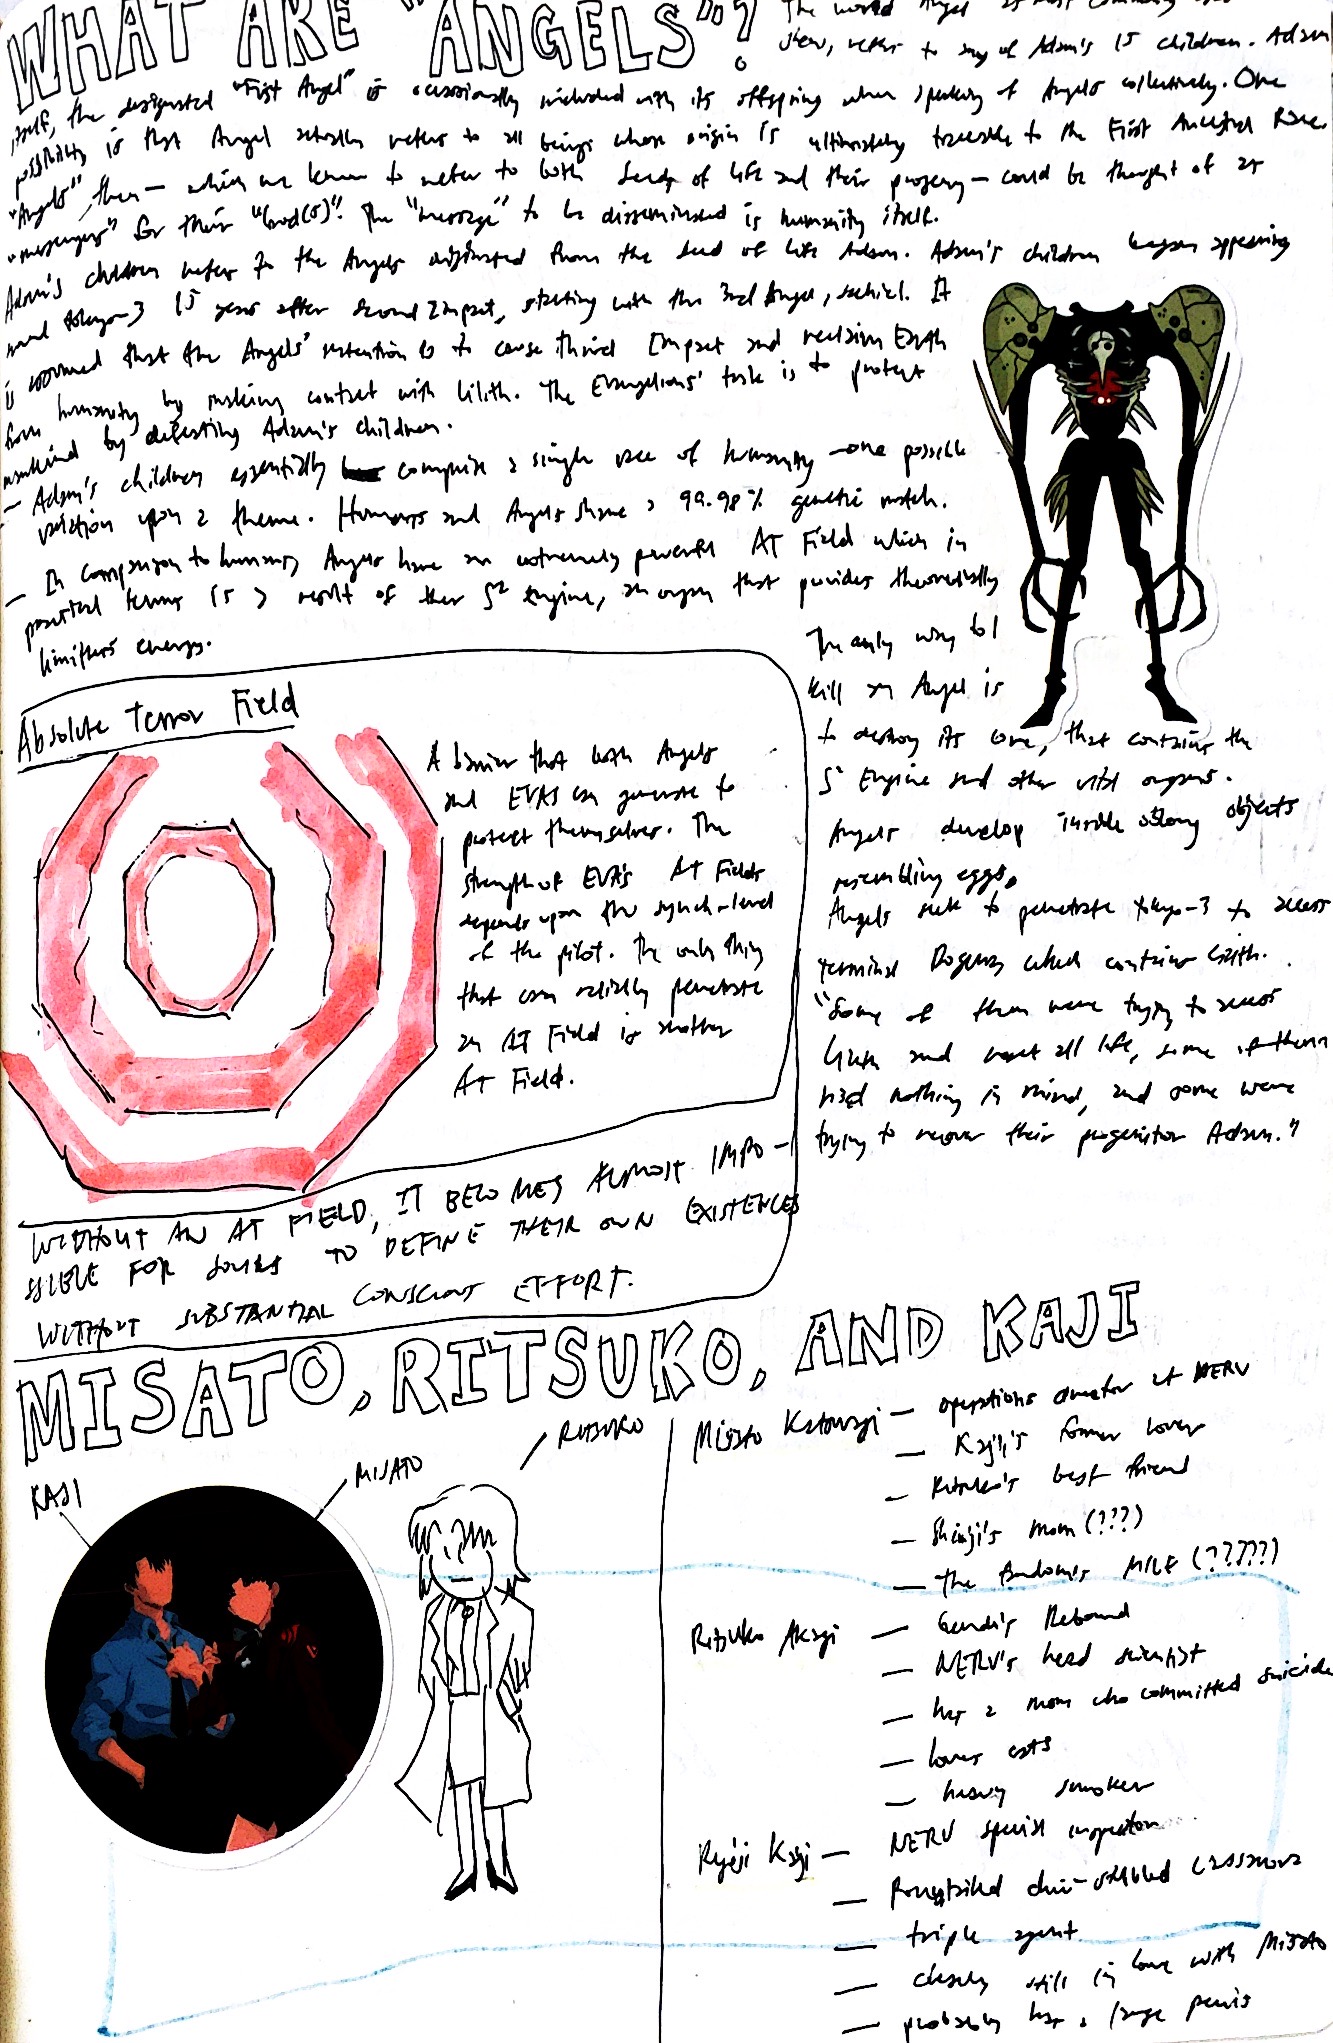 WHAT ARE "ANGELS"?
The world Angel is most commonly used
refers to any of Adam's 15 children. Adam
itself, the designated "First Angel" is occasionally included with its offspring when speaking of Angels collectively. One
possibility is that Angel actually refers to all beings whose origin is ultimately traceable to the First Ancestral Race.
"Angels", then — which we know to refer to both Seeds of Life and their progeny — could be thought of as
"messengers" for their "God(s)". The "message" to be disseminated is humanity itself.
Adam's children refer to the Angels originated from the Seed of Life Adam. Adam's children began appearing
Tokyo-3 15 years after Second Impact, starting with the 3rd Angel, Sachiel. It
is assumed that the Angels' intention is to cause Third Impact and reclaim Earth
from humanity by making contact with Lilith. The Evangelions' task is to protect
mankind by defeating Adam's children.
— Adam's children essentially comprise a single race of humanity — one possible
variation upon a theme. Humans and Angels share a 99.98% genetic match.
— In comparison to humans, Angels have an extremely powerful AT Field which in
practical terms is a result of their S² Engine, an organ that provides theoretically
limitless energy.
The only way to
kill an Angel is
to destroy its core, that contains the
S² Engine and other vital organs.
Angels develop inside oblong objects
resembling eggs.
Angels seek to penetrate Tokyo-3 to access
Terminal Dogma which contains Lilith.
"Some of them were trying to access
Lilith and reset all life, some of them
had nothing in mind, and some were
trying to recover their progenitor Adam."
Absolute Terror Field
A barrier that both Angels
and EVAs can generate to
protect themselves. The
strength of EVA's AT Fields
depends upon the synch-level
of the pilot. The only thing
that can reliably penetrate
an AT Field is another
AT Field.
WITHOUT AN AT FIELD, IT BECOMES ALMOST IMPO-
SSIBLE FOR SOULS TO DEFINE THEIR OWN EXISTENCES
WITHOUT SUBSTANTIAL CONSCIOUS EFFORT.
MISATO, RITSUKO, AND KAJI
KAJI
MISATO
RITSUKO
Misato Katsuragi — operations director at NERV
— Kaji's former lover
— Ritsuko's best friend
— Shinji's mom (???)
— The fandom's MILF (?????)
Ritsuko Akagi — Gendo's Rebound
— NERV's head scientist
— has a mom who committed suicide
— loves cats
— heavy smoker
Ryoji Kaji — NERV special inspector
— Ponytailed chin-stubbled Casanova
— triple agent
— clearly still in love with Misato
— probably has a large penis